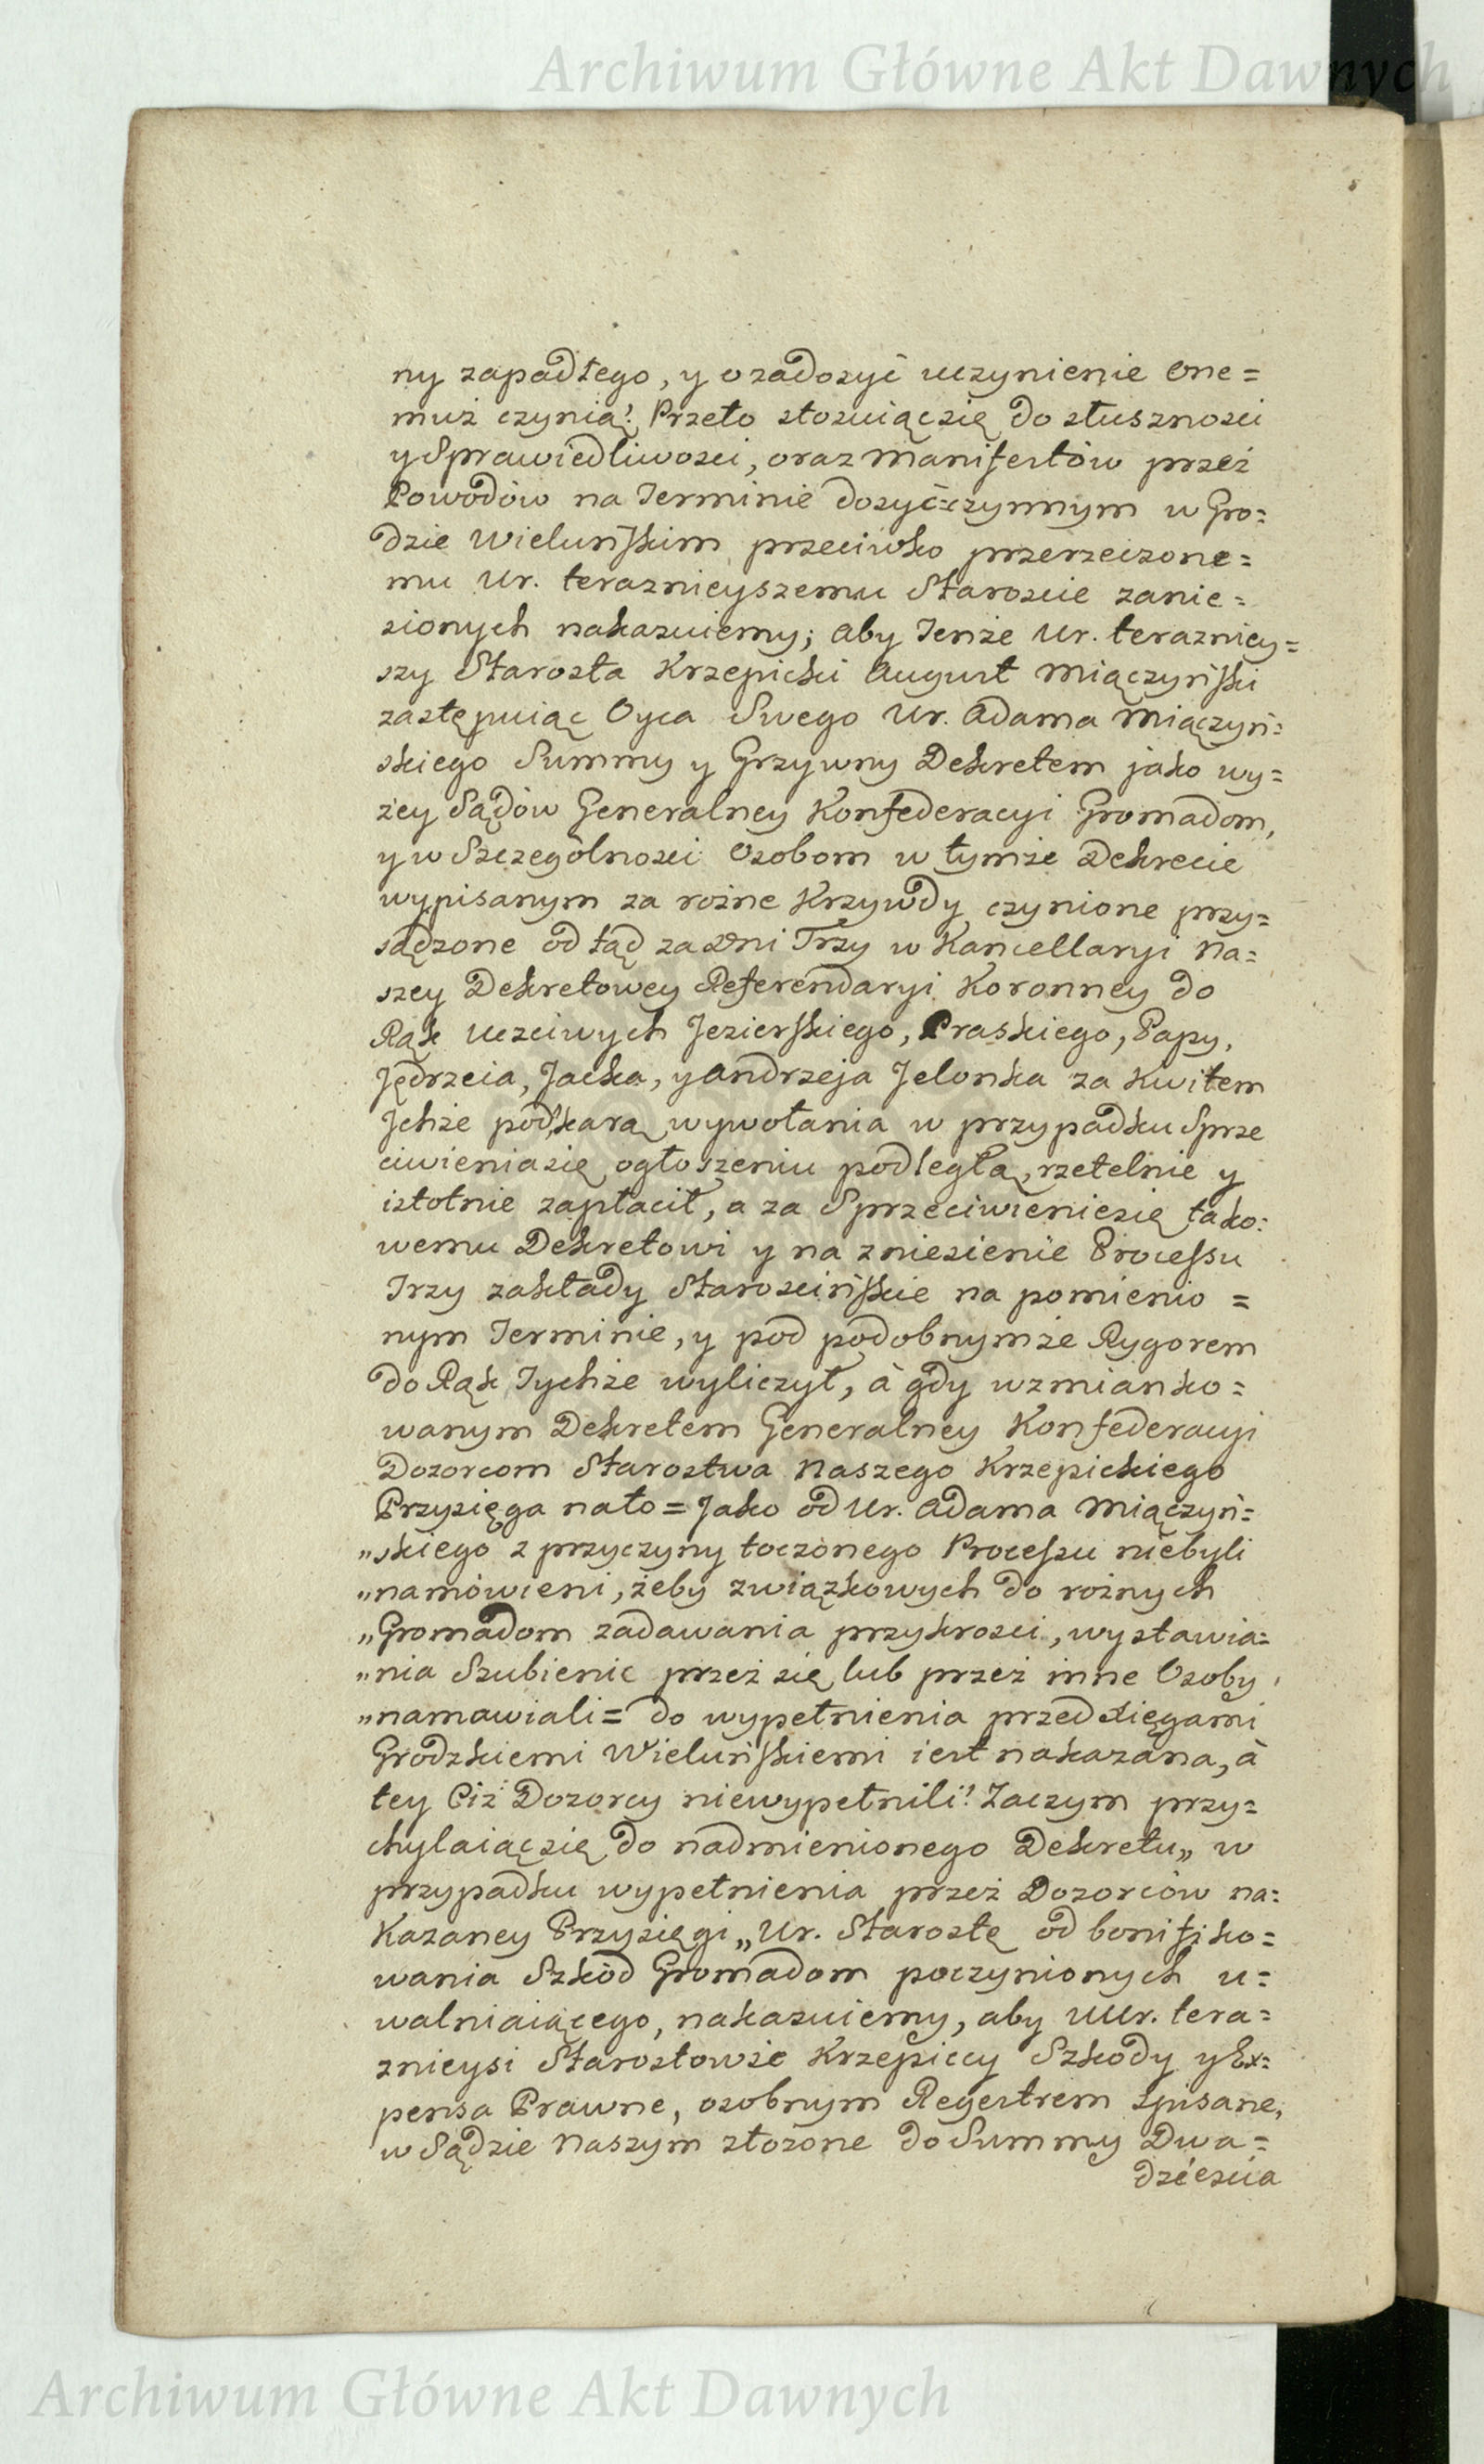 Archiwum Główne Akt Dawnych
ny zapadłego, y o zadosyć uczynienie one=
muż czynią? Przeto stosuiąc się do słusznosci
y Sprawiedliwosci, oraz Manifestów przez
Powodów na Terminie dosyć czynnym w Gro=
dzie Wieluńskim przeciwko przerzeczone=
mu Ur. teraznieyszemu Staroscie zanie=
sionych nakazuiemy; aby Tenże Ur. terazniey=
szy Starosta Krzepicki August Miączyński
zastępuiąc Oyca Swego Ur. Adama Miączyń=
skiego Summy y Grzywny Dekretem jako wy=
żey Sądów Generalney Konfederacyi Gromadom,
y w Szczególnosci Osobom w tymże Dekrecie
wypisanym za rożne Krzywdy czynione przy=
sądzone od tąd za Dni Trzy w Kancellaryi Na=
szey Dekretowey Referendaryi Koronney do
Rąk Uczciwych Jezierskiego, Praskiego, Papy,
Jędrzeia, Jacka, y Andrzeja Jelonka za Kwitem
Jchże pod karą wywołania w przypadku Sprze
ciwienia się ogłoszeniu podległą, rzetelnie y
istotnie zapłacił, a za Sprzeciwienie się tako=
wemu Dekretowi y na zniesienie Processu
Trzy zakłady Staroscińskie na pomienio =
nym Terminie, y pod podobnymże Rygorem
do Rąk Tychże wyliczył, à gdy wzmianko=
wanym Dekretem Generalney Konfederacyi
Dozorcom Starostwa Naszego Krzepickiego
Przysięga na to = Jako od Ur. Adama Miączyń=
„skiego z przyczyny toczonego Processu niebyli
„namówieni, żeby związkowych do rożnych
„Gromadom zadawania przykrosci, wystawia=
„nia Szubienic przez się lub przez inne Osoby
„namawiali = do wypełnienia przed Xięgami
Grodzkiemi Wieluńskiemi iest nakazana, à
tey Ciż Dozorcy niewypełnili? Zaczym przy=
chylaiąc się do nadmienionego Dekretu„ w
przypadku wypełnienia przez Dozorców na=
Kazaney Przysięgi „ Ur. Starostę od bonifiko=
wania Szkód Gromadom poczynionych u=
walniaiącego, nakazuiemy, aby UUr. tera=
znieysi Starostowie Krzepiccy Szkody y Ex=
pensa Prawne, osobnym Regestrem spisane,
w Sądzie Naszym złożone do Summy Dwa=
dziescia
Archiwum Główne Akt Dawnych